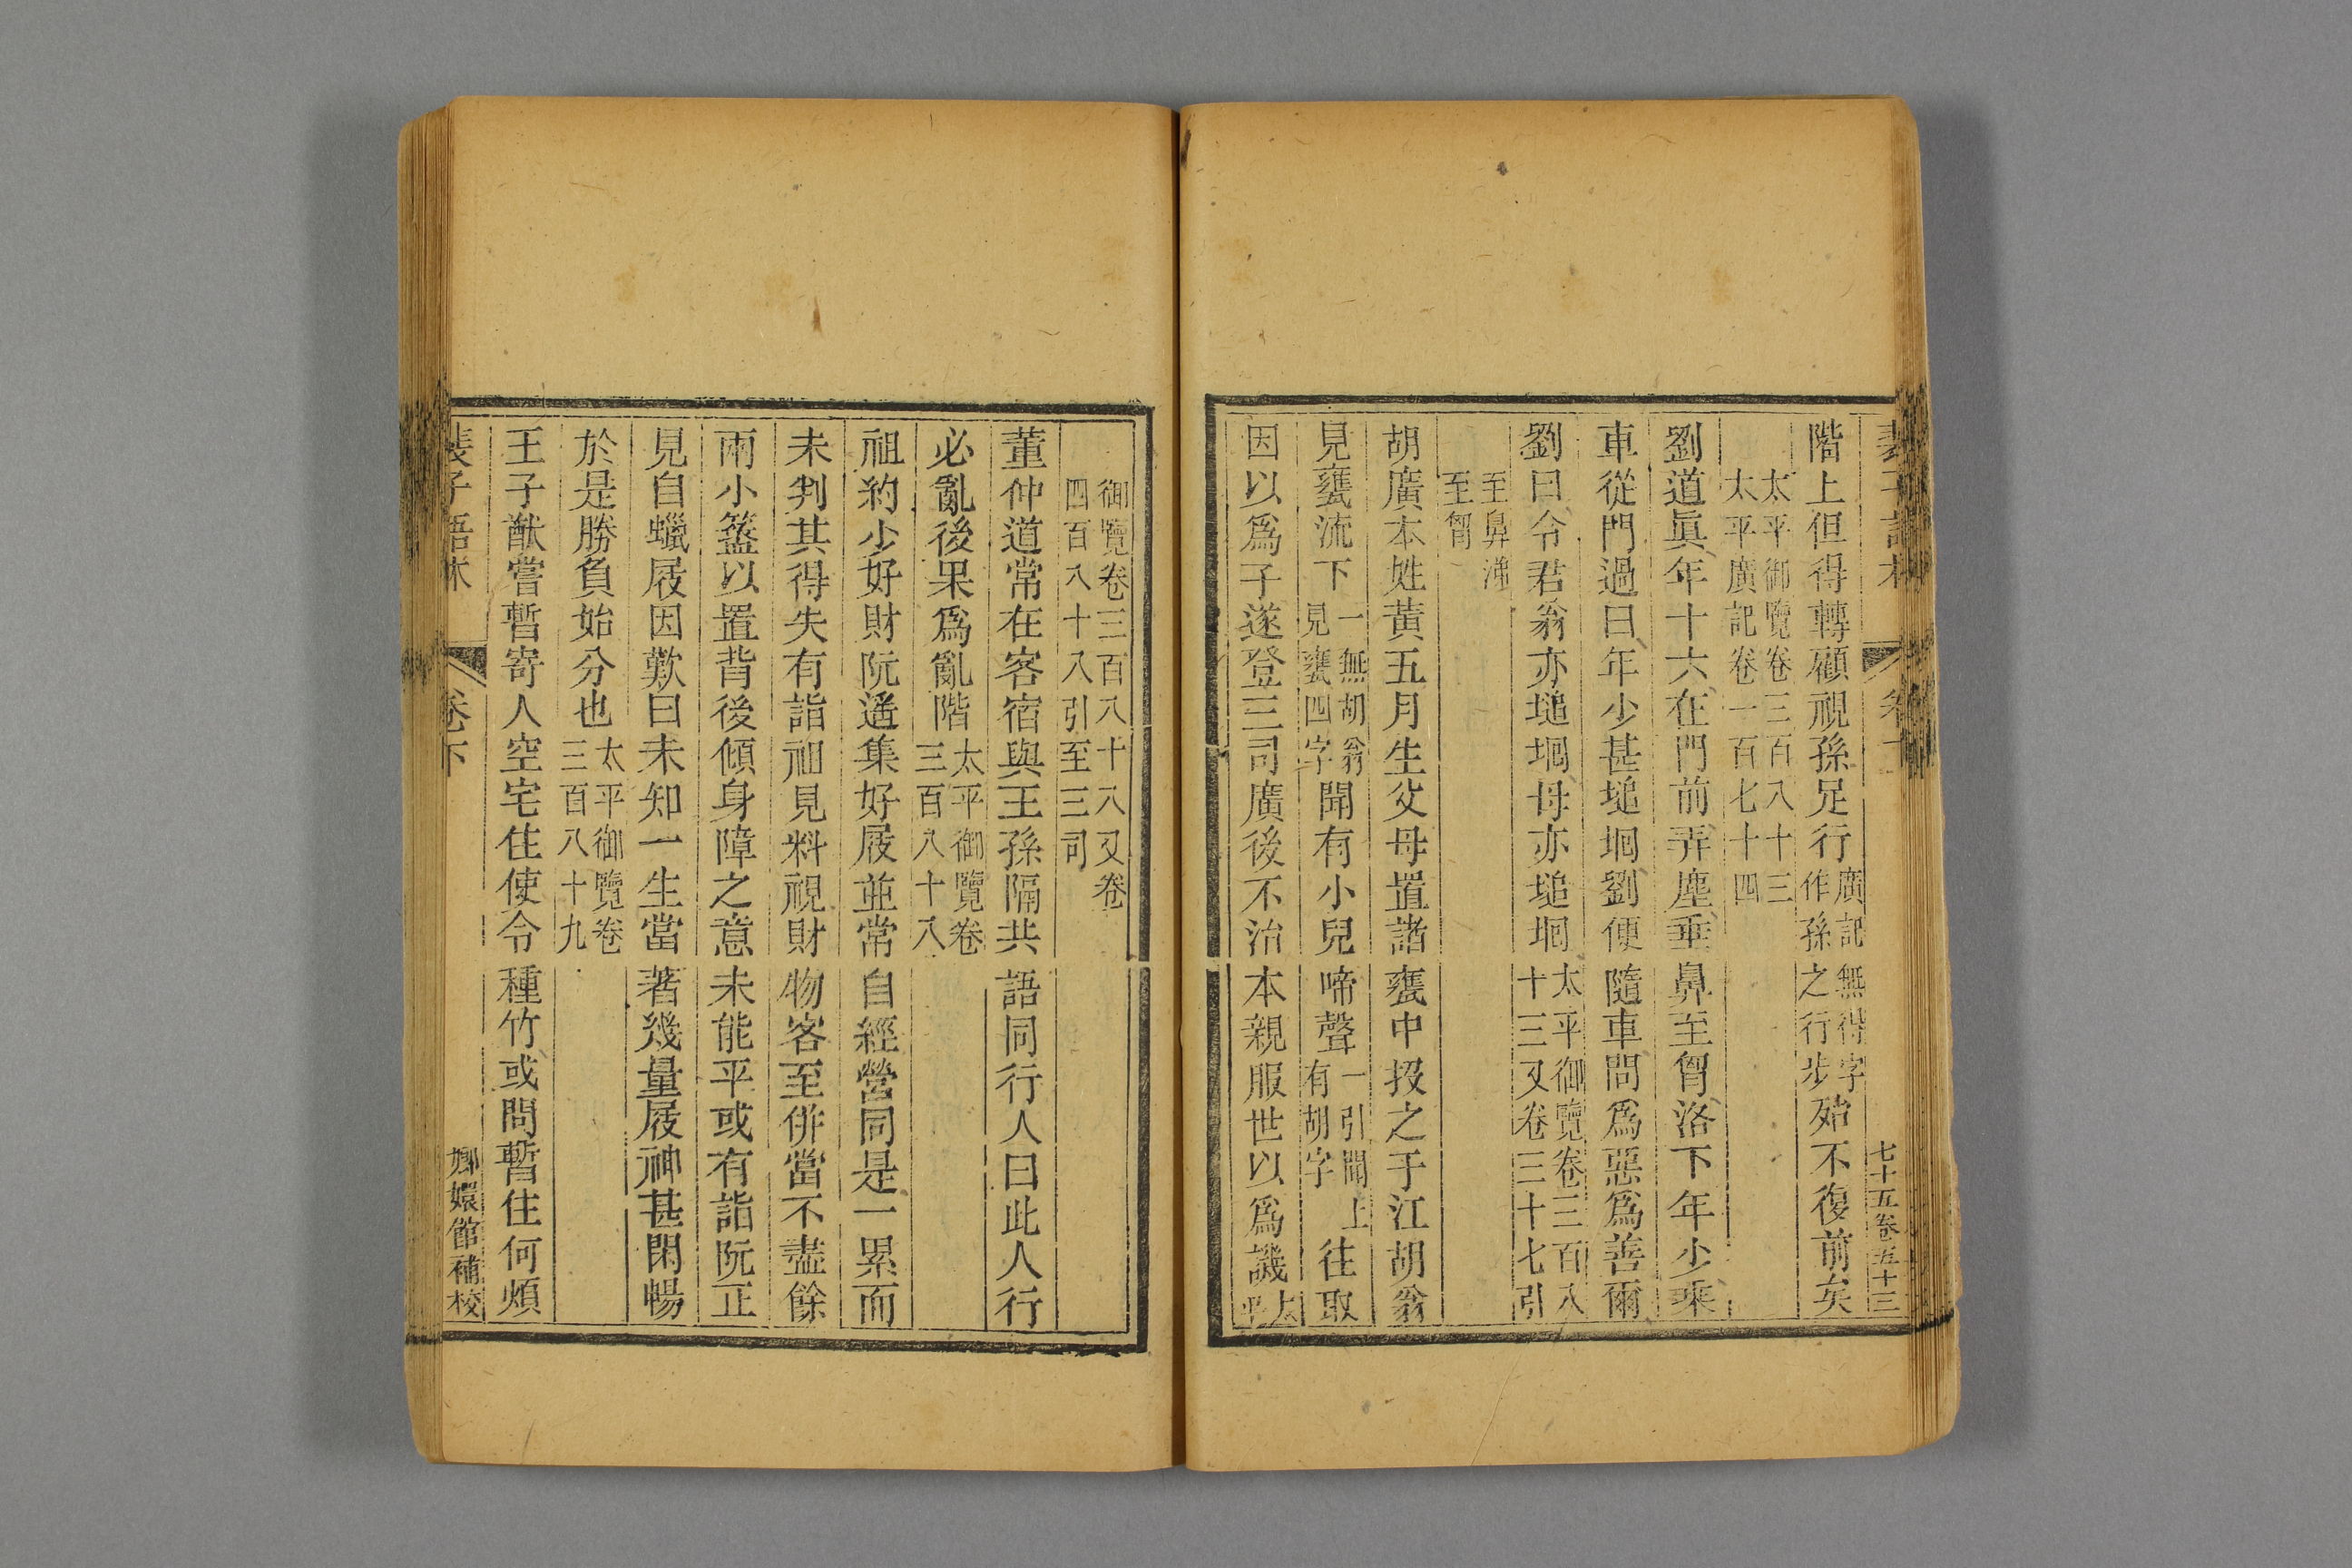 七十五卷五十三
階上但得轉顧視孫足行廣記無得字作孫之行步殆不復前矣
太平御覽卷三百八十三
太平廣記卷一百七十四
劉道眞年十六在門前弄塵垂鼻至胷洛下年少乘
車從門過曰年少甚塠堌劉便隨車問爲惡爲善爾
劉曰令君翁亦塠堌母亦塠堌太平御覽卷三百八十三又卷三十七引
至鼻涕
至胷
胡廣本姓黃五月生父母置諸甕中投之于江胡翁
見甕流下一無胡翁見甕四字聞有小兒啼聲一引聞上有胡字往取
因以爲子遂登三司廣後不治本親服世以爲譏太平
御覽卷三百八十八又卷
四百八十八引至三司
董仲道常在客宿與王孫隔共語同行人曰此人行
必亂後果爲亂階太平御覽卷三百八十八
祖約少好財阮遙集好屐並常自經營同是一累而
未判其得失有詣祖見料視財物客至併當不盡餘
兩小簏以置背後傾身障之意未能平或有詣阮正
見自蠟屐因歎曰未知一生當著幾量屐神甚閑暢
於是勝負始分也太平御覽卷三百八十九
王子猷嘗暫寄人空宅住使令種竹或問暫住何煩
裴子語林 卷下 嫏嬛館補校